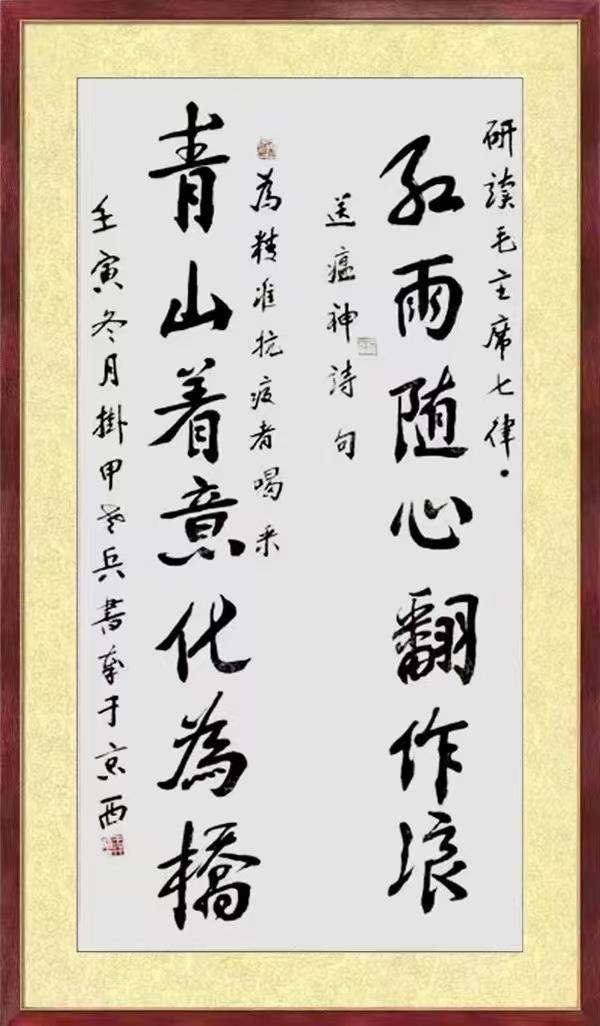 研读毛主席七律·
红雨随心翻作浪
送瘟神詩句
为精准抗疫者喝采
青山着意化為橋
壬寅冬月掛甲老兵書奉于京西